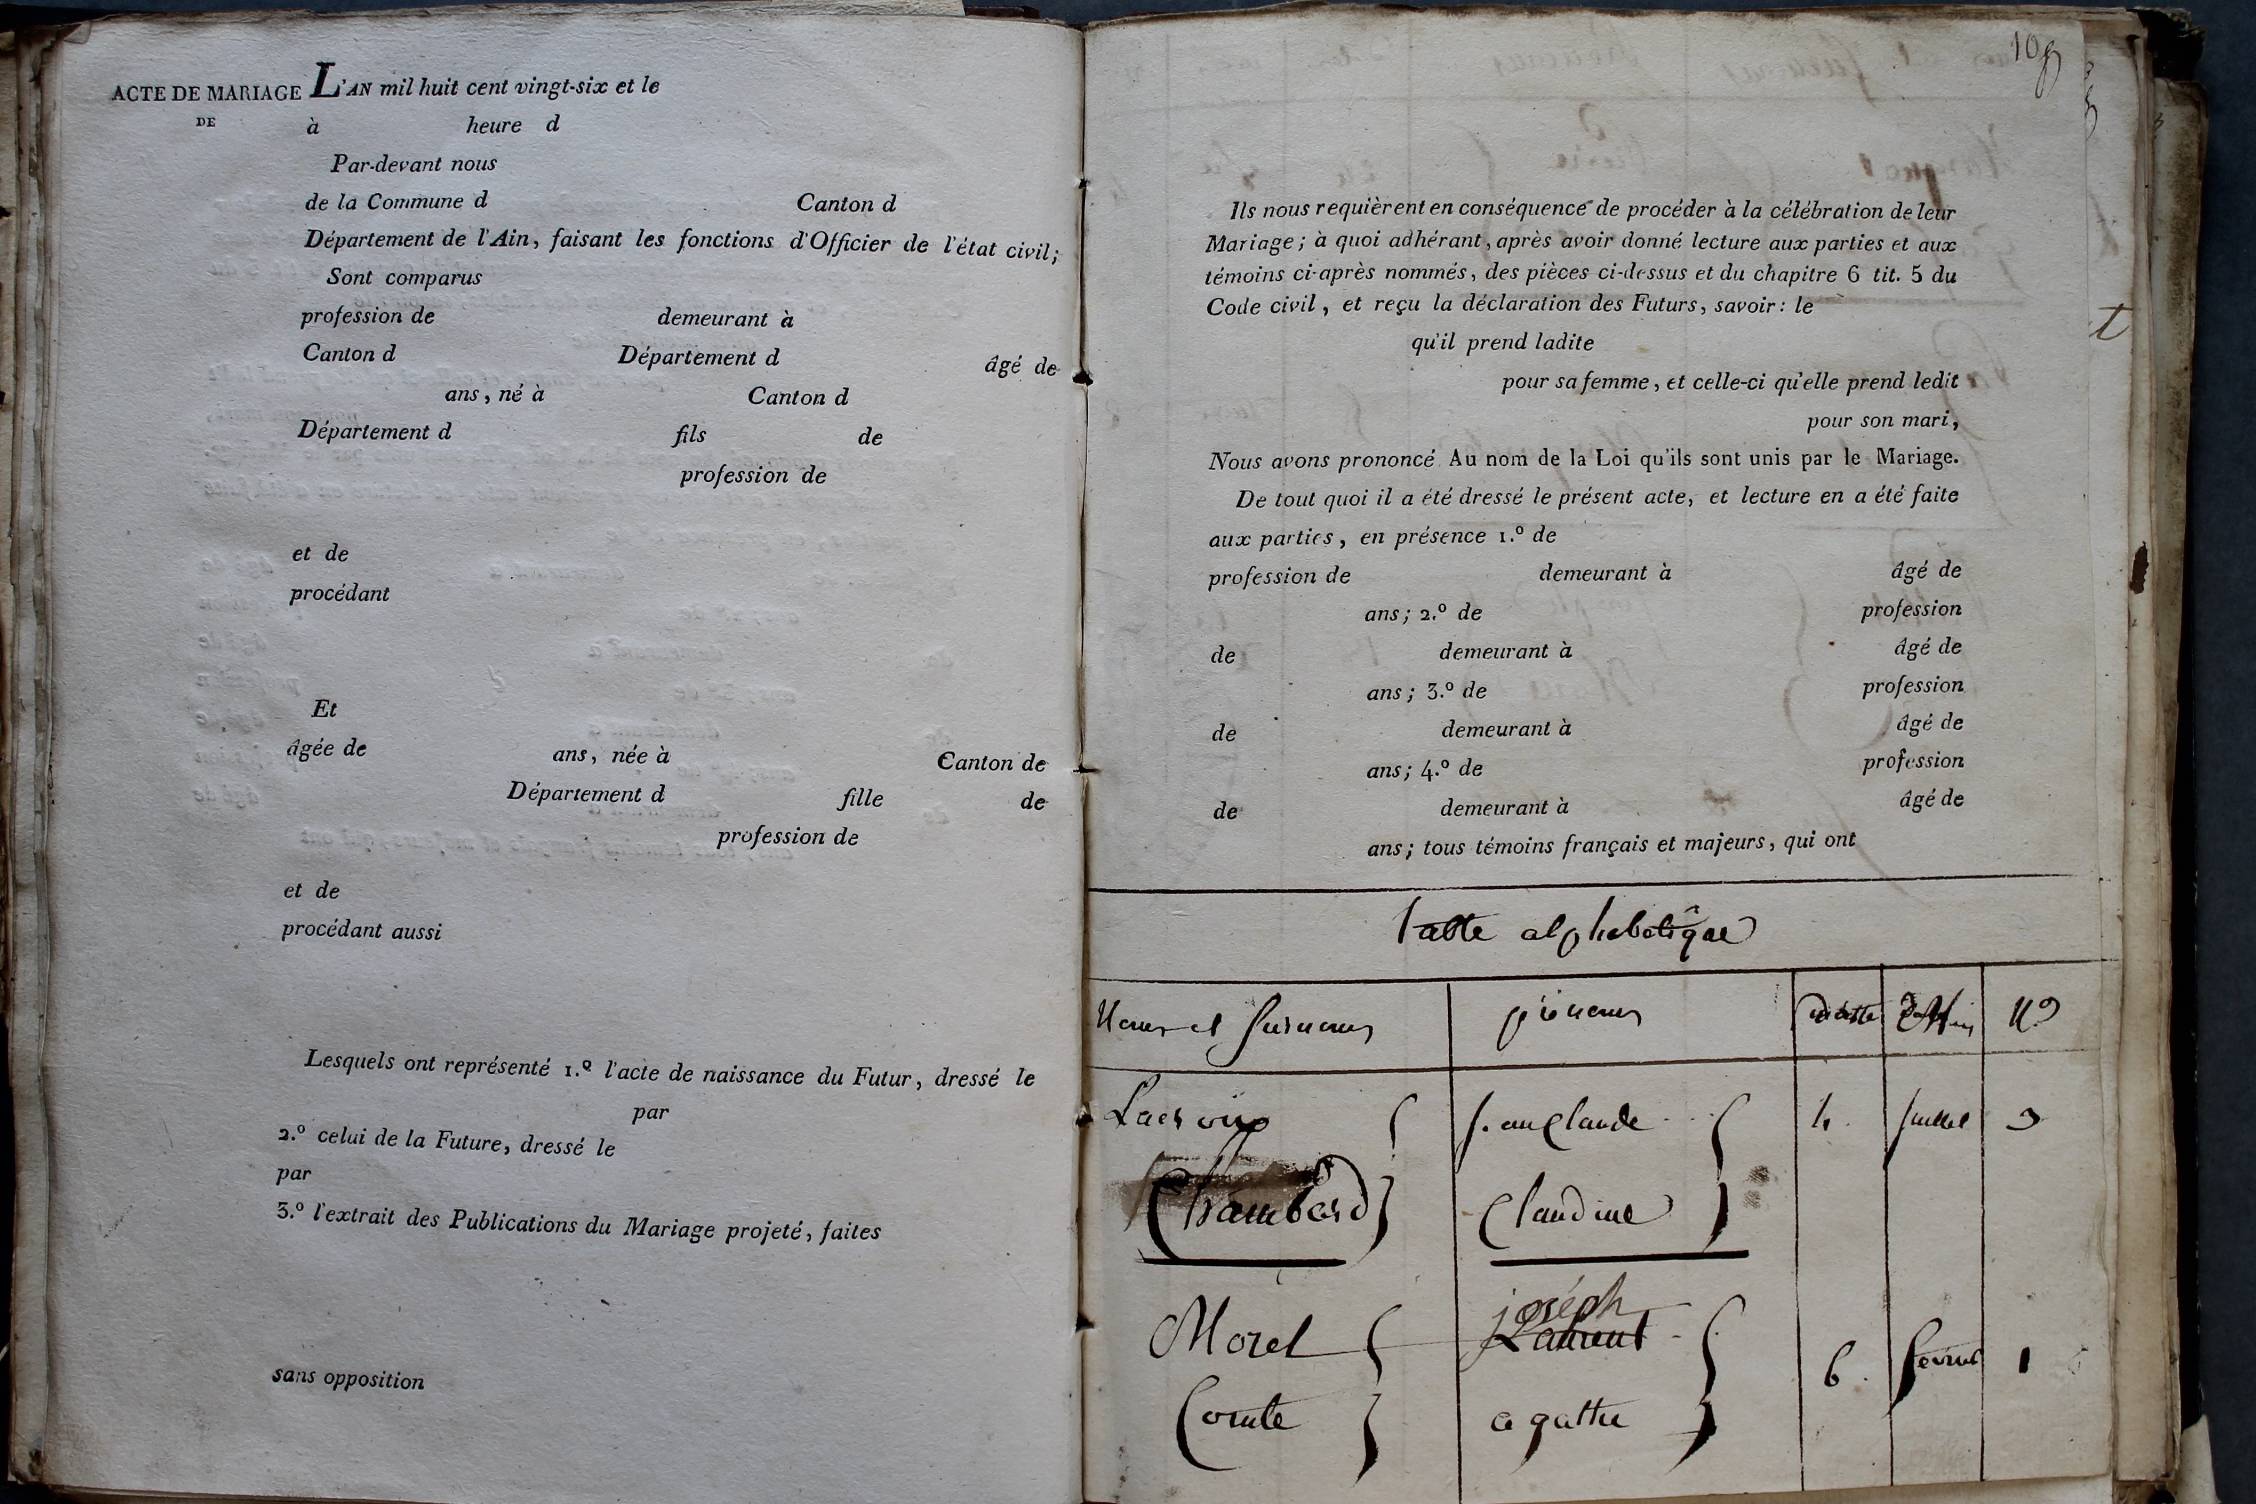 ACTE DE MARIAGE L'AN mil huit cent vingt-six et le
DE à heure d
Par-devant nous
de la Commune d Canton d
Département de l'Ain, faisant les fonctions d'Officier de l'état civil;
Sont comparus
profession de demeurant à
Canton d Département d âgé de
ans, né à Canton d
Département d fils de
profession de
et de
procédant
Et
âgée de ans, née à Canton de
Département d fille de
profession de
et de
procédant aussi
Lesquels ont représenté 1.º l'acte de naissance du Futur, dressé le
par
2.º celui de la Future, dressé le
par
3.º l'extrait des Publications du Mariage projeté, faites
sans opposition
Ils nous requièrent en conséquence de procéder à la célébration de leur
Mariage; à quoi adhérant, après avoir donné lecture aux parties et aux
témoins ci-après nommés, des pièces ci-dessus et du chapitre 6 tit. 5 du
Code civil, et reçu la déclaration des Futurs, savoir: le
qu'il prend ladite
pour sa femme, et celle-ci qu'elle prend ledit
pour son mari,
Nous avons prononcé Au nom de la Loi qu'ils sont unis par le Mariage.
De tout quoi il a été dressé le présent acte, et lecture en a été faite
aux parties, en présence 1.º de
profession de demeurant à âgé de
ans; 2.º de profession
de demeurant à âgé de
ans; 3.º de profession
de demeurant à âgé de
ans; 4.º de profession
de demeurant à âgé de
ans; tous témoins français et majeurs, qui ont
table alphabetique
Noms et surnoms prénoms Nº
Lacroix j. au Claude 4. juillet 3
Chambard Claudine
joséph
Morel Laurent 6. fevrier 1
Comte agathe